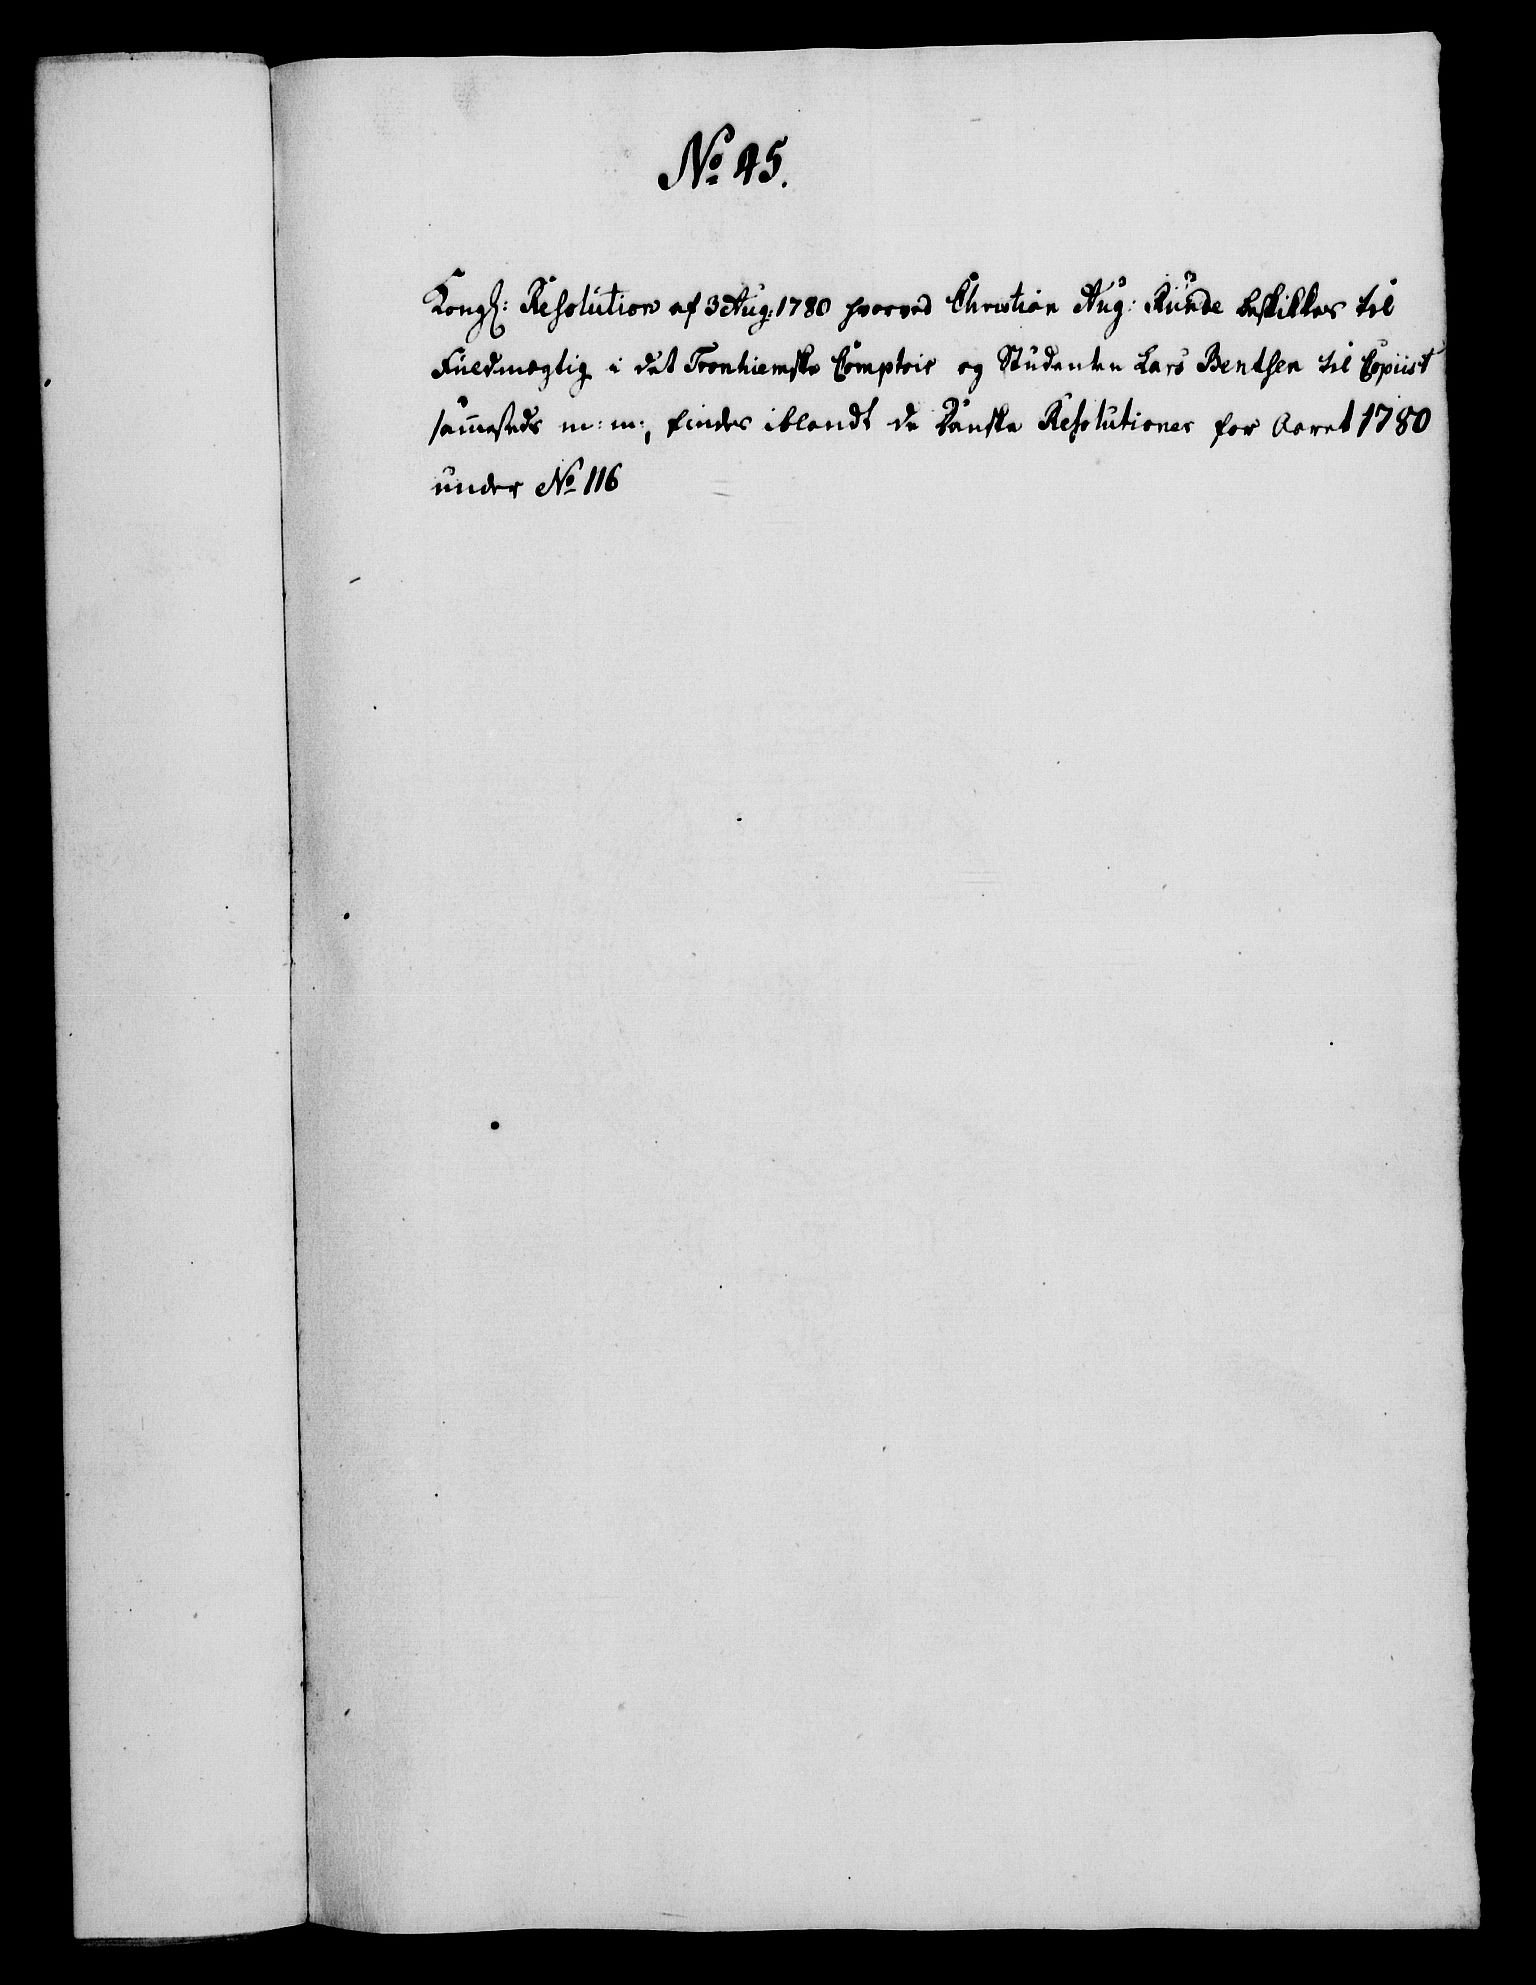 No 45.
Kongl: Resolution af 3 Aug: 1780 hvorved Christian Aug: Runde beskikkes til
Fuldmægtig i det Tronhiemske Comptoir og Studenten Lars Benthen til Copiist
sammesteds m: m:, findes iblandt de Danske Resolutioner for Aaret 1780
under No 116